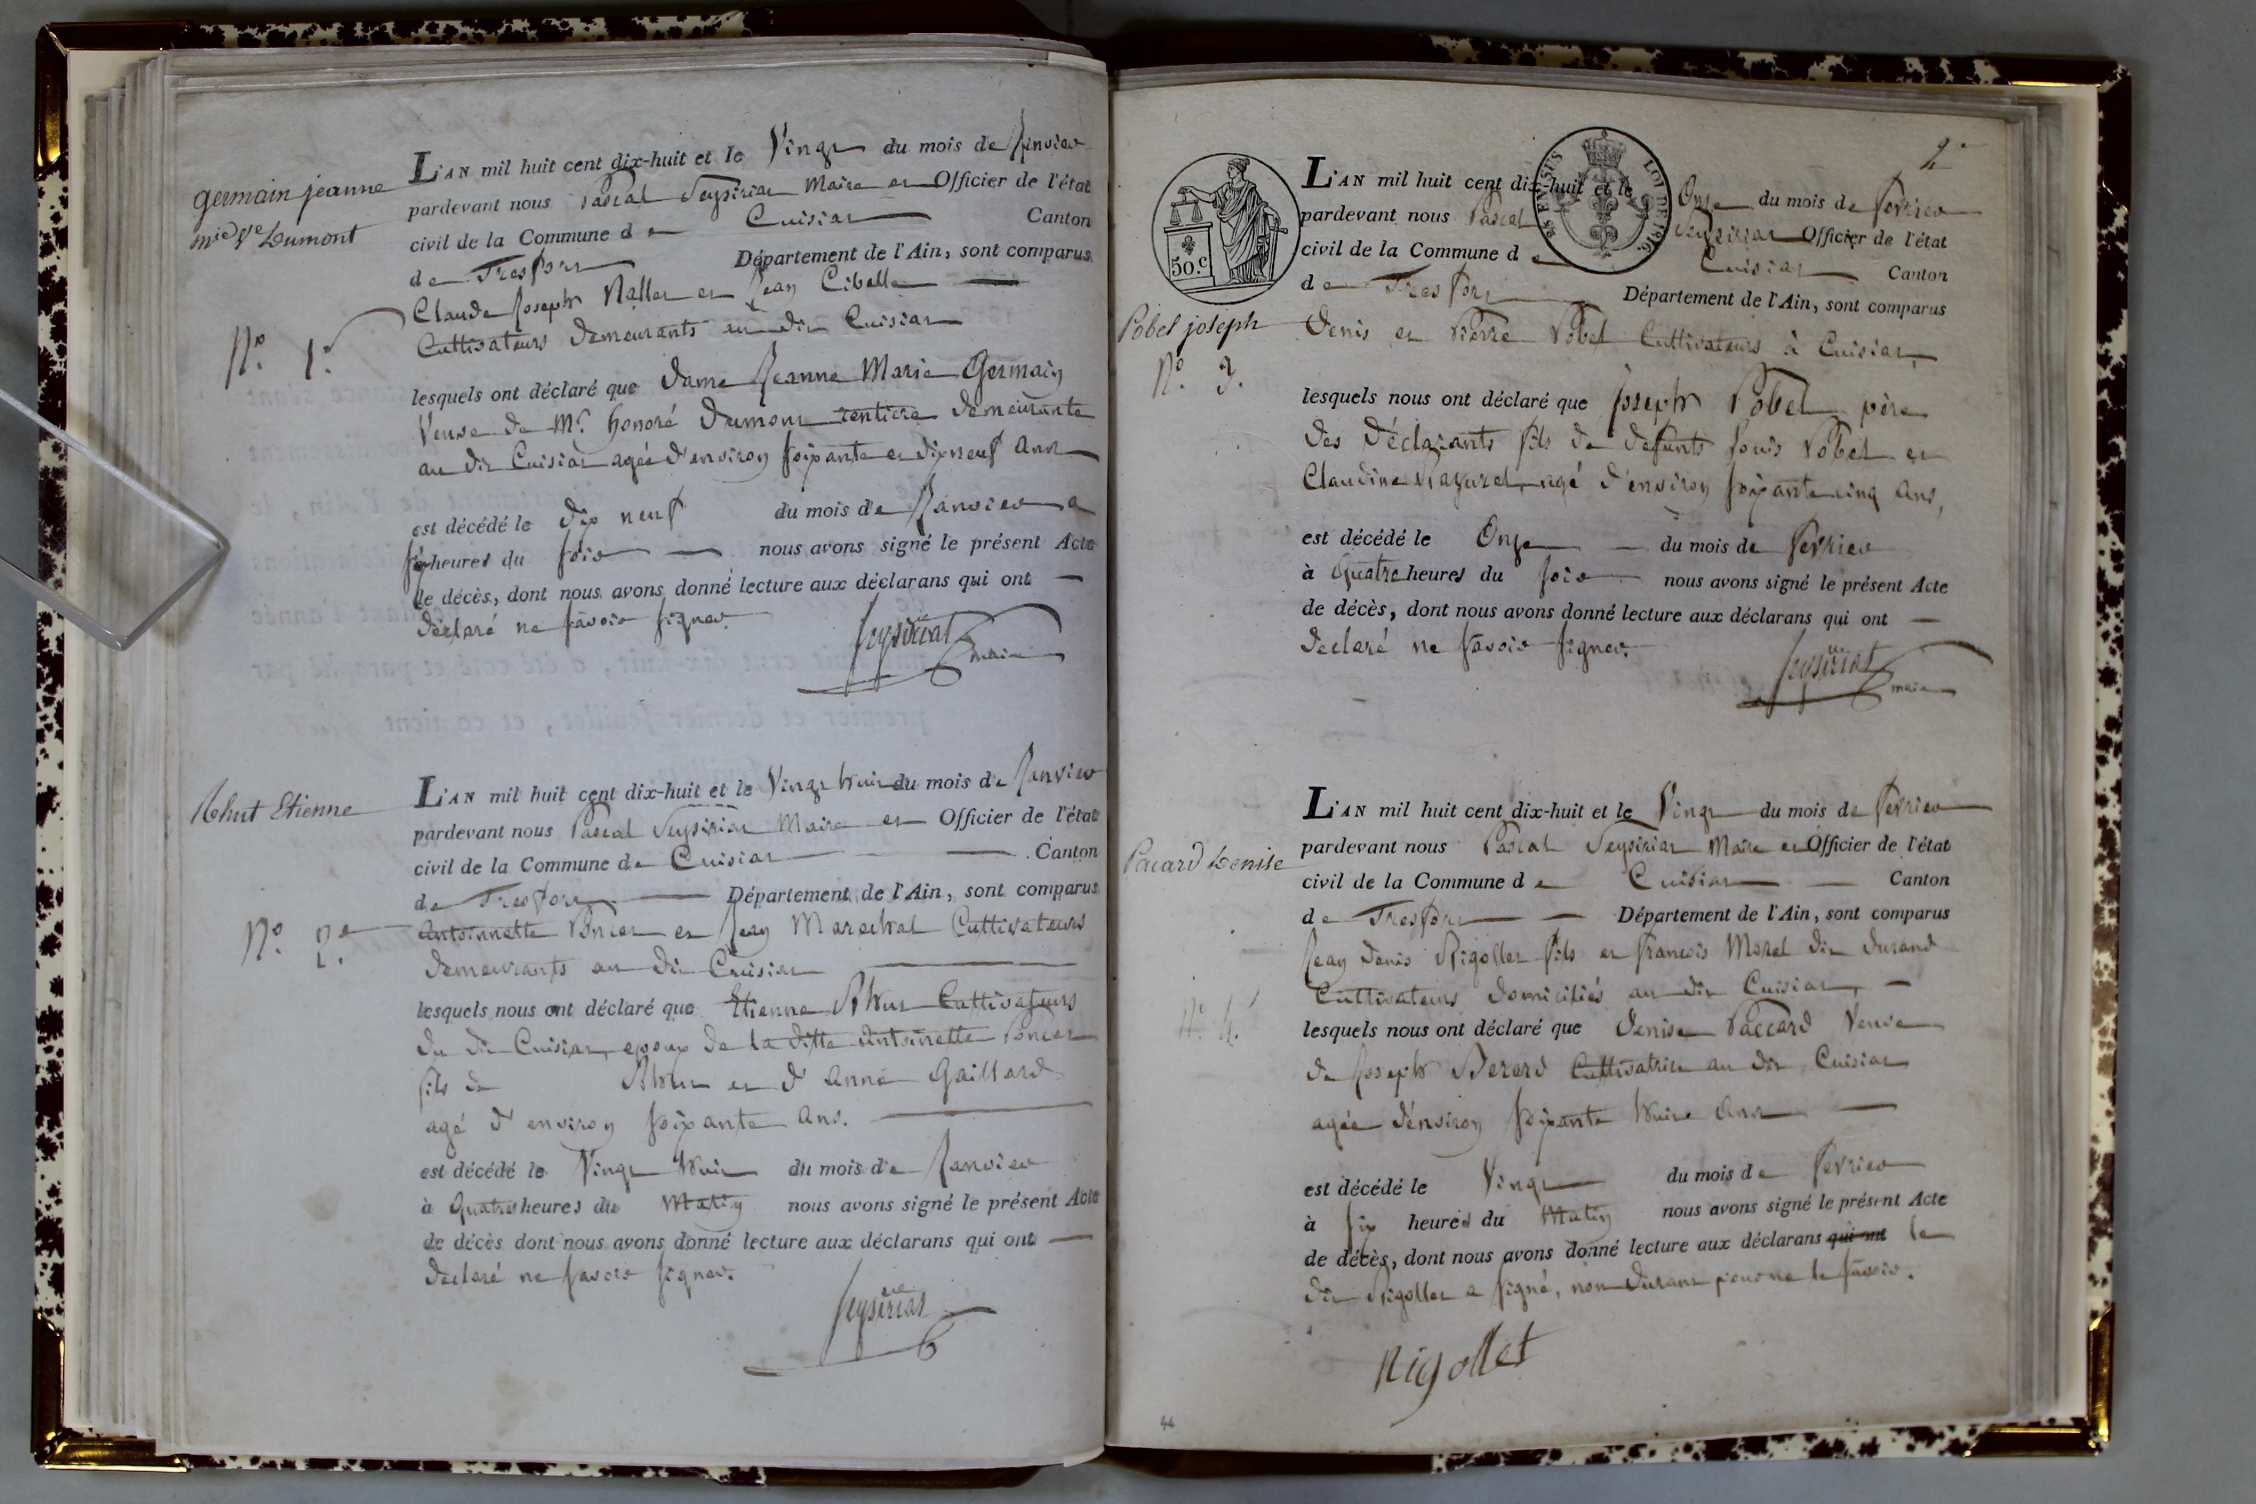 germain jeanne
mie Ve Dumont
No. 1er
L'AN mil huit cent dix-huit et le Vingt du mois de Janvier
pardevant nous Pascal Seysiriat Maire et Officier de l'état
civil de la Commune de Cuisiat Canton
de Treffort Département de l'Ain, sont comparus
Claude Joseph Nallet et Jean Cibelle
Cultivateurs demeurants au dit Cuisiat
lesquels ont déclaré que dame Jeanne Marie Germain
Veuve de Mr. honoré Dumont rentiere demeurante
au dit Cuisiat agée d'environ soixante et dixneuf ans
est décédé le dix neuf du mois de Janvier a
six heures du soir nous avons signé le présent Acte
de décès, dont nous avons donné lecture aux déclarans qui ont
déclaré ne savoir signer.
Seysiriat
maire
Rhut Etienne
No. 2e
L'AN mil huit cent dix-huit et le Vingt huit du mois de Janvier
pardevant nous Pascal Seysiriat Maire et Officier de l'état
civil de la Commune de Cuisiat Canton
de Treffort Département de l'Ain, sont comparus
Antoinnette Poncet et Jean Marechal Cultivateurs
demeurants au dit Cuisiat
lesquels nous ont déclaré que Etienne Rhut Cultivateurs
du dit Cuisiat, epoux de la ditte Antoinette Poncet
fils de Rhut et d'Anne Gaillard
agé d'environ soixante ans.
est décédé le Vingt huit du mois de Janvier
à Quatre heures du Matin nous avons signé le présent Acte
de décès dont nous avons donné lecture aux déclarans qui ont
déclaré ne savoir signer.
Seysiriat
2e
50.c
LOI DE 1816.
L'AN mil huit cent dix-huit et le Onze du mois de fevrier
pardevant nous Pascal Seysiriat Officier de l'état
civil de la Commune de Cuisiat Canton
de Treffort Département de l'Ain, sont comparus
Pobel joseph
No. 3.
Denis et Pierre Pobel Cultivateurs à Cuisiat,
lesquels nous ont déclaré que Joseph Pobel père
des déclarants fils de defunts Louis Pobel et
Claudine agé d'environ soixante cinq ans,
est décédé le Onze du mois de fevrier
à Quatre heures du soir nous avons signé le présent Acte
de décès, dont nous avons donné lecture aux déclarans qui ont
declaré ne savoir signer.
Seysiriat
maire
L'AN mil huit cent dix-huit et le Vingt du mois de fevrier
pardevant nous Pascal Seysiriat Maire et Officier de l'état
Pacard Denise
civil de la Commune de Cuisiat Canton
de Treffort Département de l'Ain, sont comparus
Jean Denis Rigollet fils et francois Morel dit Durand
Cultivateurs domiciliés au dit Cuisiat,
No. 4.
lesquels nous ont déclaré que Denise Paccard Veuve
de Joseph Berard Cultivatrice au dit Cuisiat
agée d'environ soixante huit ans
est décédé le Vingt du mois de fevrier
à six heures du Matin nous avons signé le présent Acte
de décès, dont nous avons donné lecture aux déclarans qui ont le
dit Rigollet a signé, non Durant pour ne le savoir.
Rigollet
44